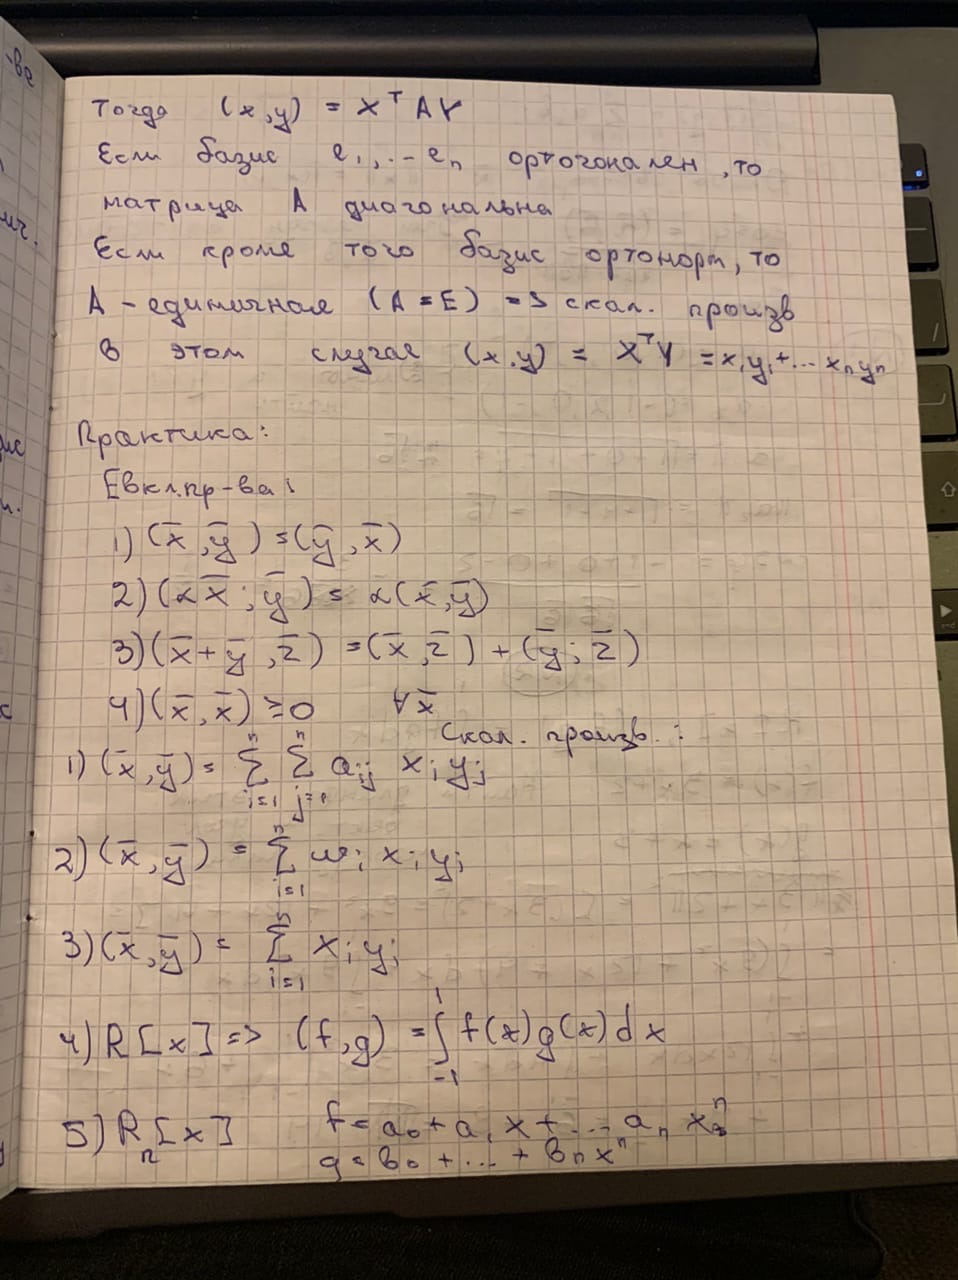 Тогда (x,y) = XᵀAY
Если базис e₁,...eₙ ортогонален, то
матрица A диагональна
Если кроме того базис ортонорм, то
A - единичная (A = E) => скал. произв
в этом случае (x,y) = XᵀY = x₁y₁+... xₙyₙ
Практика:
Евкл.пр-ва:
1) (x̄,ȳ) = (ȳ,x̄)
2) (αx̄;ȳ) = α(x̄,ȳ)
3) (x̄+ȳ,z̄) = (x̄,z̄) + (ȳ;z̄)
4) (x̄,x̄) ≥ 0 ∀x̄
Скал. произв. :
1) (x̄,ȳ) = ∑ⁿᵢ₌₁ ∑ⁿⱼ₌₁ aᵢⱼ xᵢyⱼ
2) (x̄,ȳ) = ∑ⁿᵢ₌₁ wᵢ xᵢ yᵢ
3) (x̄,ȳ) = ∑ⁿᵢ₌₁ xᵢ yᵢ
4) R[x] => (f,g) = ∫₋₁¹ f(x)g(x)dx
5) Rₙ[x] f = a₀ + a₁x + ... aₙ xⁿ
g = b₀ + ... + bₙxⁿ